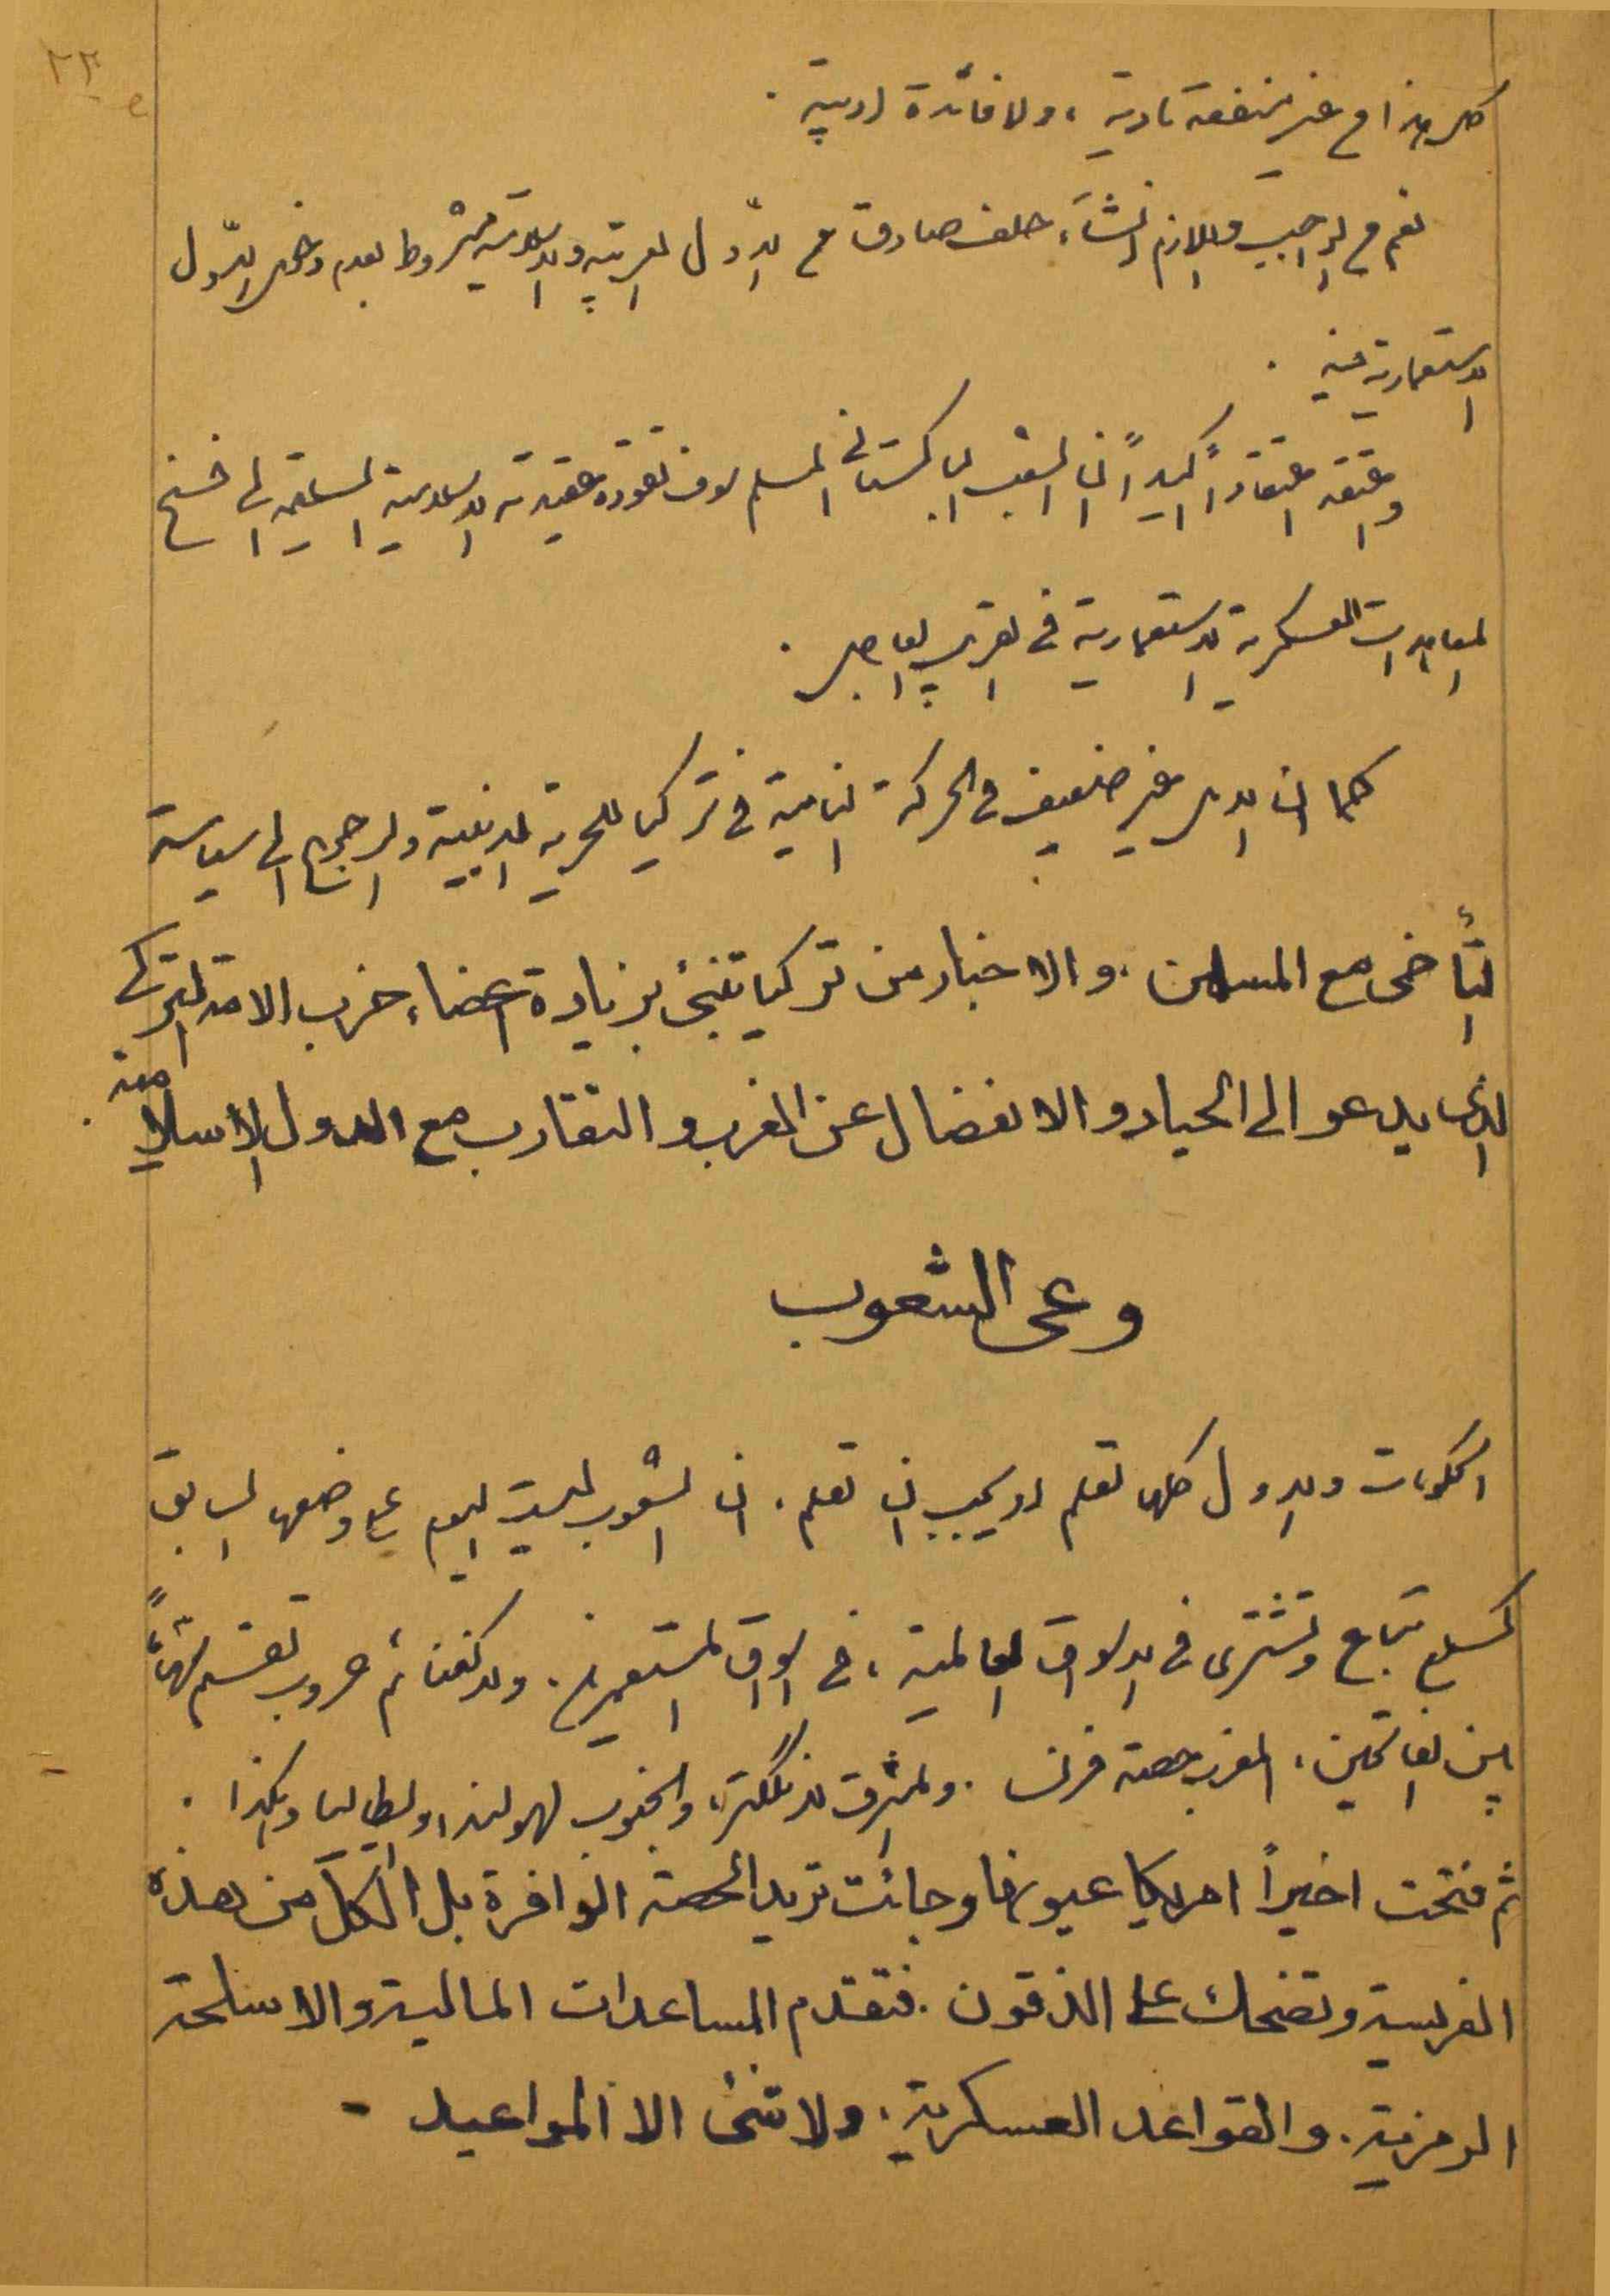 ٢٣
كل هذا من غير منفعة مادية ، ولا فائدة ادبية .
نعم من الواجب واللازم انشاء حلف صادق مع الدّول العربية والاسلامية بشروط بعدم دخول الدّول
الاستعمارية فيه .
واعتقد اعتقاداً اكيداً ان الشعب الباكستاني المسلم سوف تقوده عقيدته الاسلامية السليمة الى فسخ
المعاهدات العسكرية الاستعمارية في القريب العاجل .
كما ان الامل غير ضعيف في الحركة النامية في تركيا للحرية الدينية والرجوع الى سياسة
التأخى مع المسلمين . والاخبار من تركيا تنبئ بزيادة اعضاء حزب الامة التركى
الذى يدعو الى الحياد والانفصال عن الغرب والتقارب مع الدول الاسلامية .
وعى الشعوب
الحكومات والدول كلها تعلم او يجب ان تعلم . ان الشعوب ليست اليوم على وضعها السابق
كسلع تباع وتشترى في الاسواق العالمية ، في اسواق المستعمرين . ولا كغنائم حروب تقسم
بين الفاتحين ، المغرب حصة فرنسا . والمشرق لانكلترا، والجنوب لهولندا وايطاليا وهكذا .
ثم فتحت اخيراً امريكا عيونها وجائت تريد الحصة الوافرة بل الكل من هذه
الفريسة وتضحك على الذقون . فتقدم المساعدات المالية والاسلحة
الرمزية . والقواعد العسكرية . ولا شئ الا المواعيد -